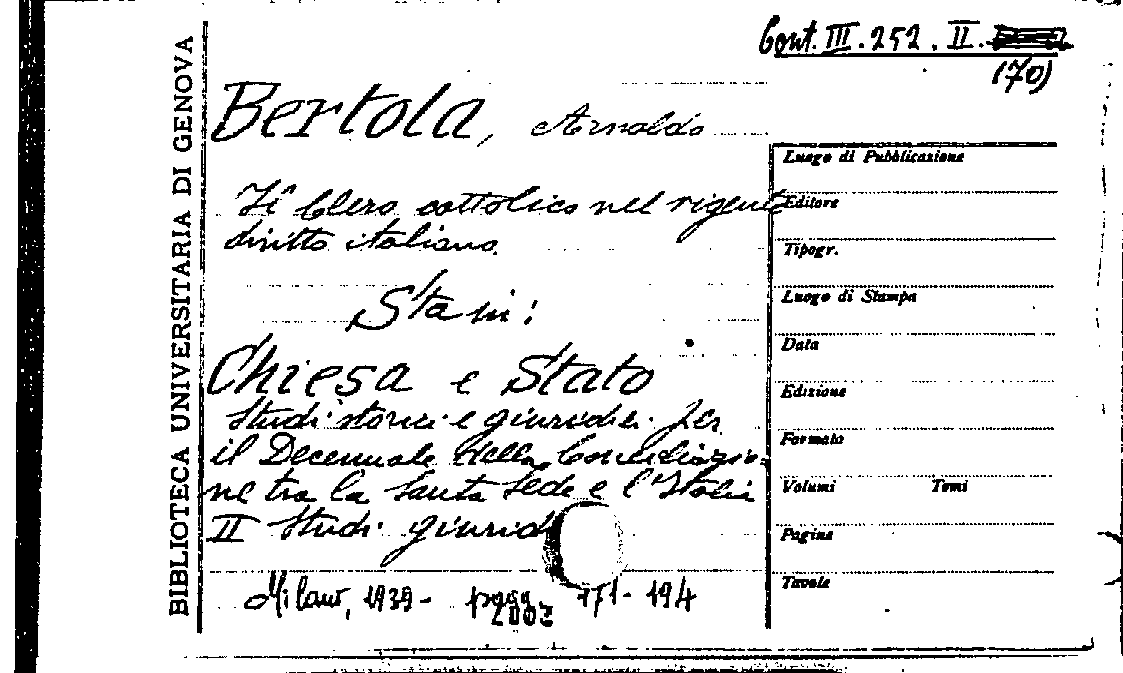 Cont. III. 252. II.
(70)
BIBLIOTECA UNIVERSITARIA DI GENOVA
Bertola, Arnaldo
Il Clero cattolico nel vigente
diritto italiano.
Sta in:
Chiesa e Stato
Studi storici e giuridici per
il Decennale della Conciliazio-
ne tra la Santa Sede e l'Italia
II Studi giurid
Milano, 1939 - pagg. 171 - 194
2002
Luogo di Pubblicazione
Editore
Tipogr.
Luogo di Stampa
Data
Edizione
Formato
Volumi Tomi
Pagine
Tavole